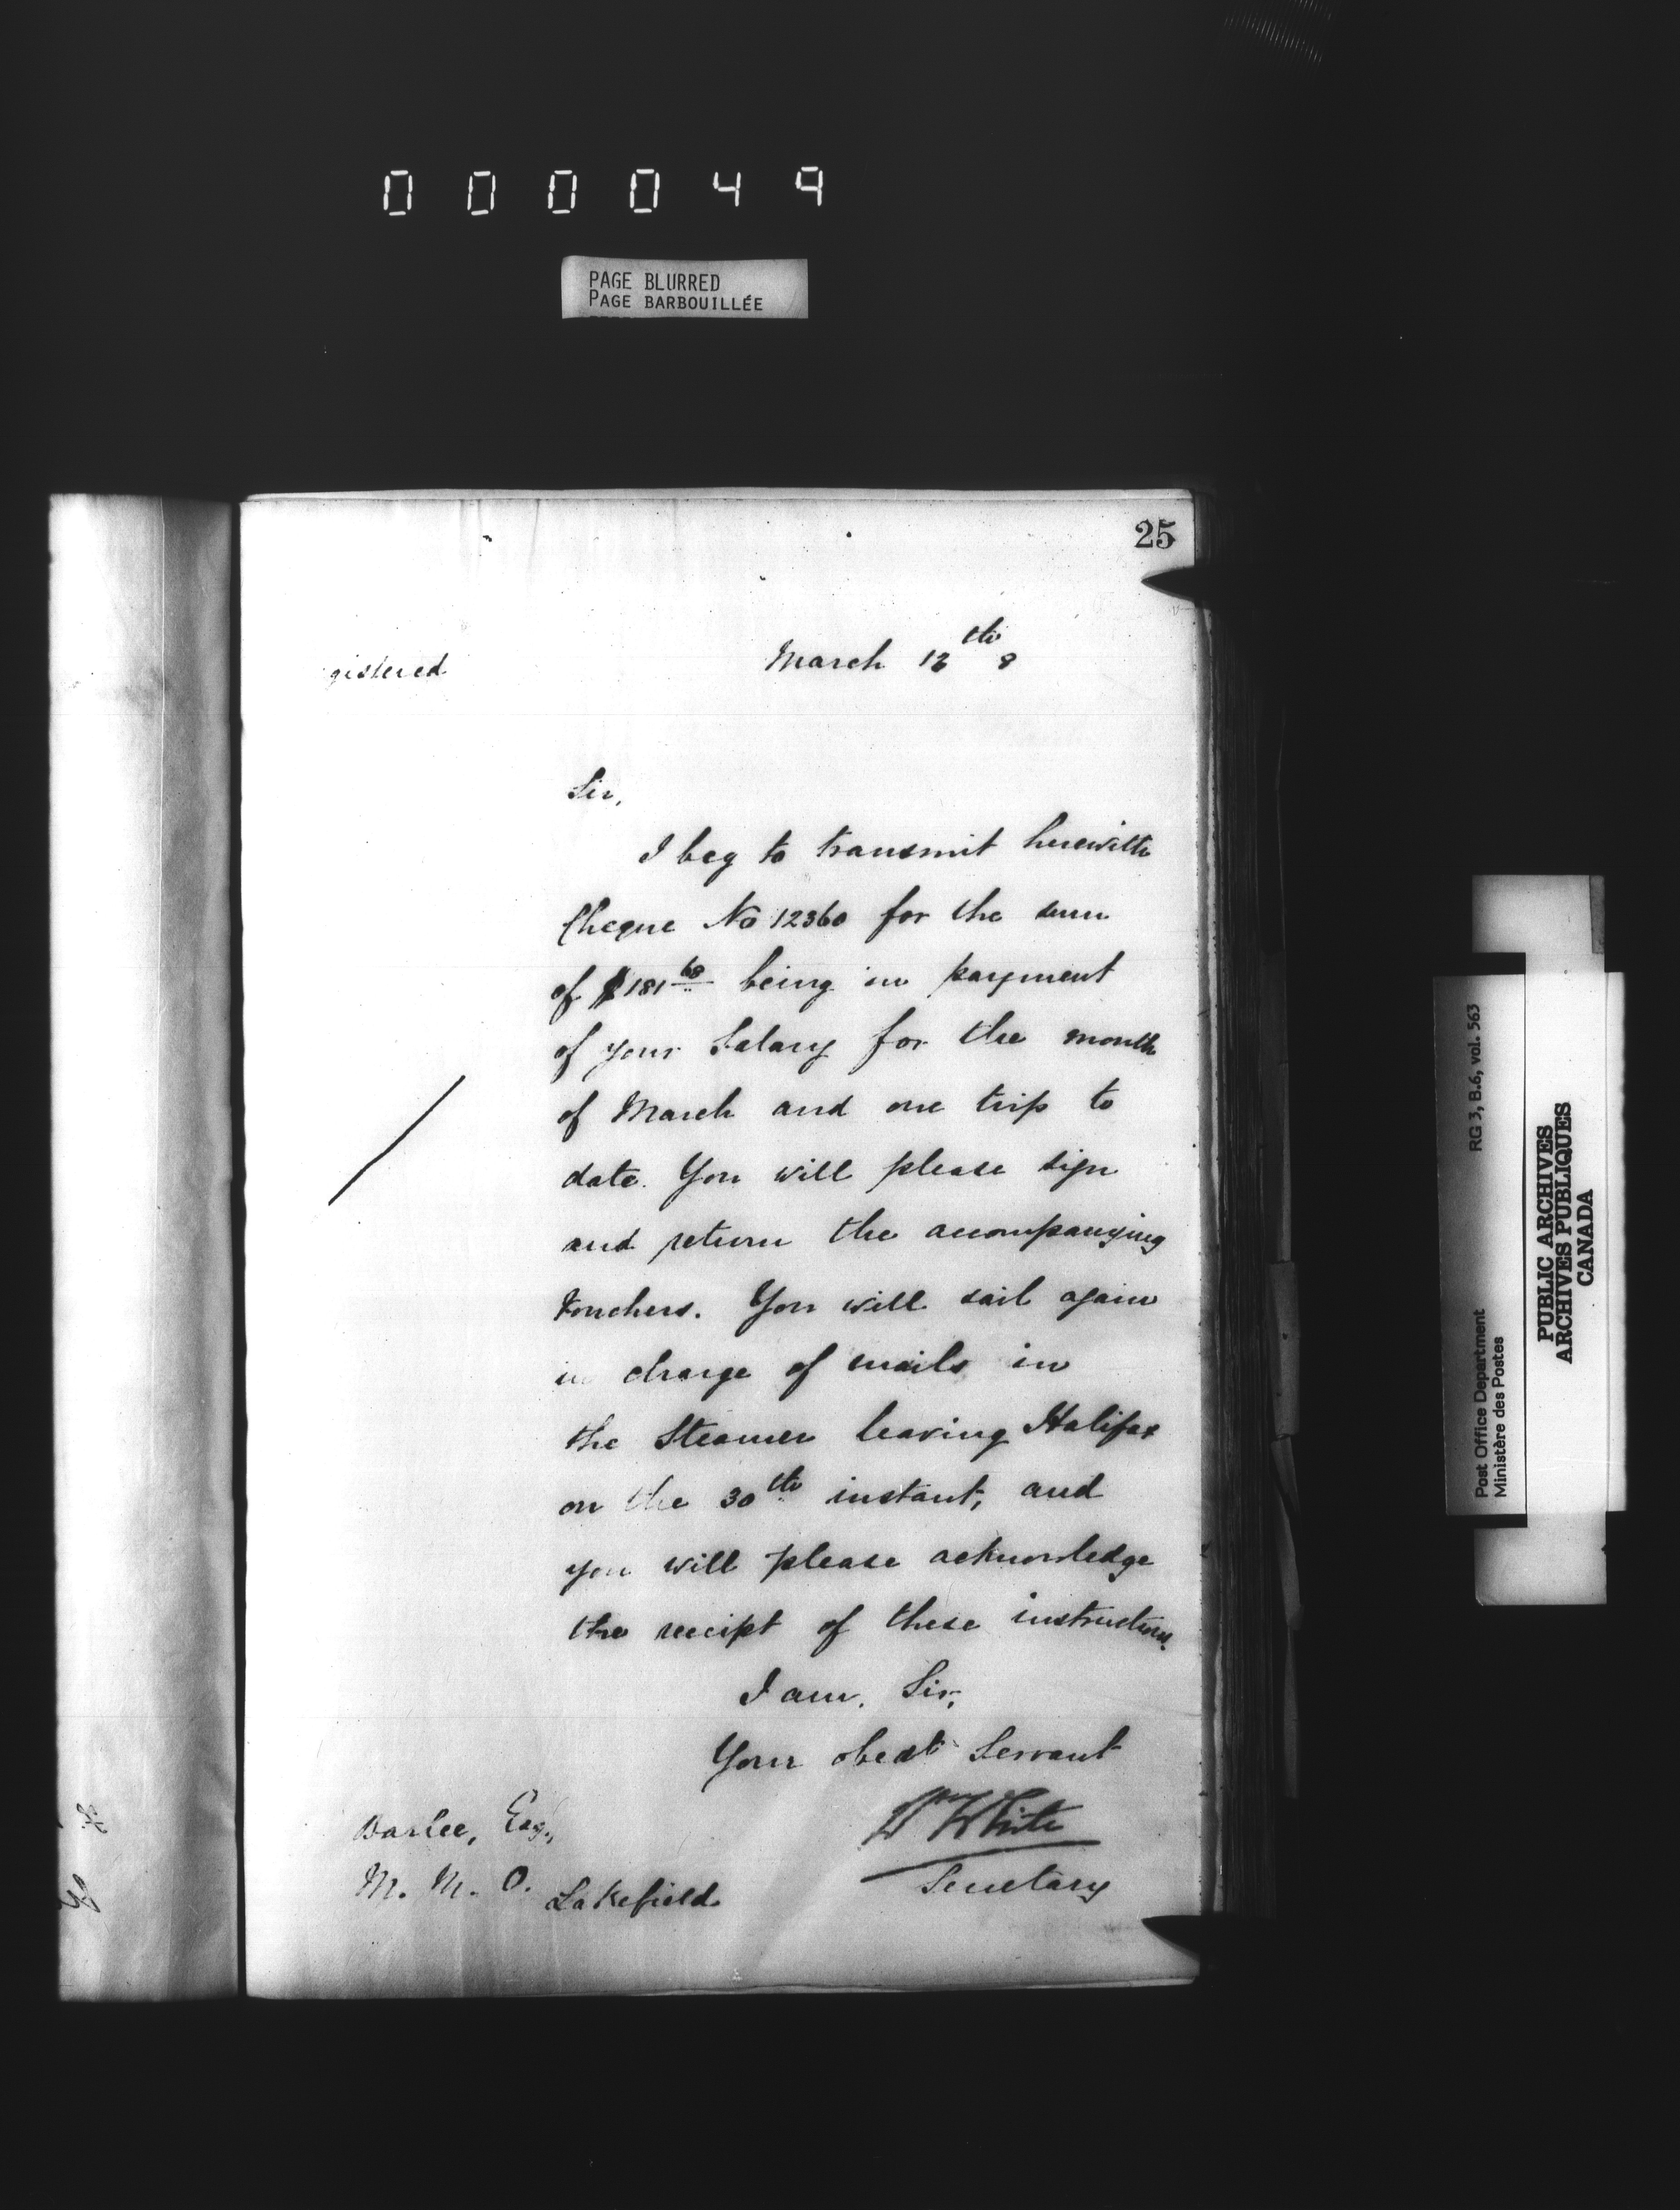 000049
PAGE BLURRED
PAGE BARBOUILLÉE
25
gistered
March 13th 8
Sir,
I beg to transmit herewith
Cheque No 12360 for the sum
of $181 68 being in payment
of your Salary for the month
of March and one trip to
date. You will please sign
and return the accompanying
Vouchers. You will sail again
in charge of mails in
the Steamer leaving Halifax
on the 30th instant, and
you will please acknowledge
the receipt of these instructions.
I am, Sir,
Your obedt Servant
Wm White
Secretary
Barlee, Esq.,
M. M. O.
Lakefield
Post Office Department
Ministère des Postes
RG 3, B.6, vol. 563
PUBLIC ARCHIVES
ARCHIVES PUBLIQUES
CANADA